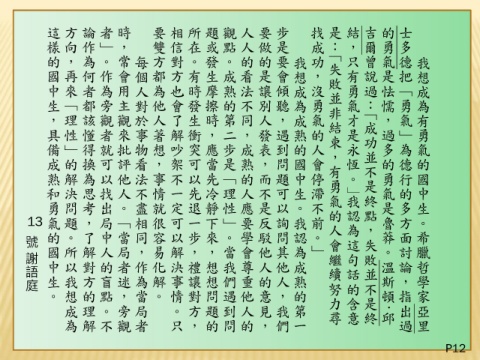 我想成為有勇氣的國中生。希臘哲學家亞里
士多德把「勇氣」為德行的多方面討論，指出過少
的勇氣是怯懦，過多的勇氣是魯莽。溫斯頓·邱
吉爾曾說過：「成功並不是終點，失敗並不是終
結，只有勇氣才是永恆。」我認為這句話的含意
是：「失敗並非結束，有勇氣的人會繼續努力尋
找成功，沒勇氣的人會停滯不前。」
我想成為成熟的國中生。我認為成熟的第一
步是要會傾聽，遇到問題可以詢問其他人，我們
要做的是讓別人發表，而不是反駁他人的意見，
人人的看法不同，成熟的人應要學會尊重他人的
觀點。成熟的第二步是「理性」。當我們遇到問
題或發生摩擦時，應當先冷靜下來，想想問題的
所在。有時發生衝突可以先退一步，禮讓對方，
相信對方也會了解吵架不一定可以解決事情。只
要雙方都為他人著想，事情就很容易化解。
每個人對於事物看法不盡相同，作為當局者
時，常會用主觀來批評他人。「當局者迷，旁觀
者」。作為旁觀者就可以找出局中人的盲點。不
論作為何者都該懂得換為思考，了解對方的理解
方向，再來「理性」的解決問題。所以我想成為
這樣的國中生，具備成熟和勇氣的國中生。
13 號 謝語庭
P12